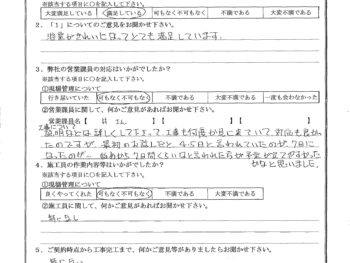 ※該当する項目に○を記入して下さい。
大変満足している 満足している 何もなく不可もなく 不満である 大変不満である
2. 「1」についてのご意見をお聞かせ下さい。
浴室がきれいになってとても満足しています。
3. 弊社の営業課員の対応はいかがでしたか？
※該当する項目に○を記入して下さい。
①現場管理について
行き届いていた 何もなく不可もなく 不満である 大変不満である 一度も会わなかった
②営業課員に関して、何かご意見があればお聞かせ下さい。
営業課員名【
工事について
説明などは詳しくして下さって、工事も何度か見に来ていて対応も良かっ
たのですが、最初のお話しだと4-5日と言われていたのが7日に
なったのが…始めから7日間くらいはと言われたらが予定が立てやすかった
かなと思いました。
4. 施工員の作業内容等はいかがでしたか？
※該当する項目に○を記入して下さい。
①現場管理について
良くやってくれた 何もなく不可もなく 不満である 大変不満である
②施工員に関して、何かご意見があればお聞かせ下さい。
特になし
5. ご契約時点から工事完工まで、何かご意見等がありましたらお聞かせ下さい。
特になし